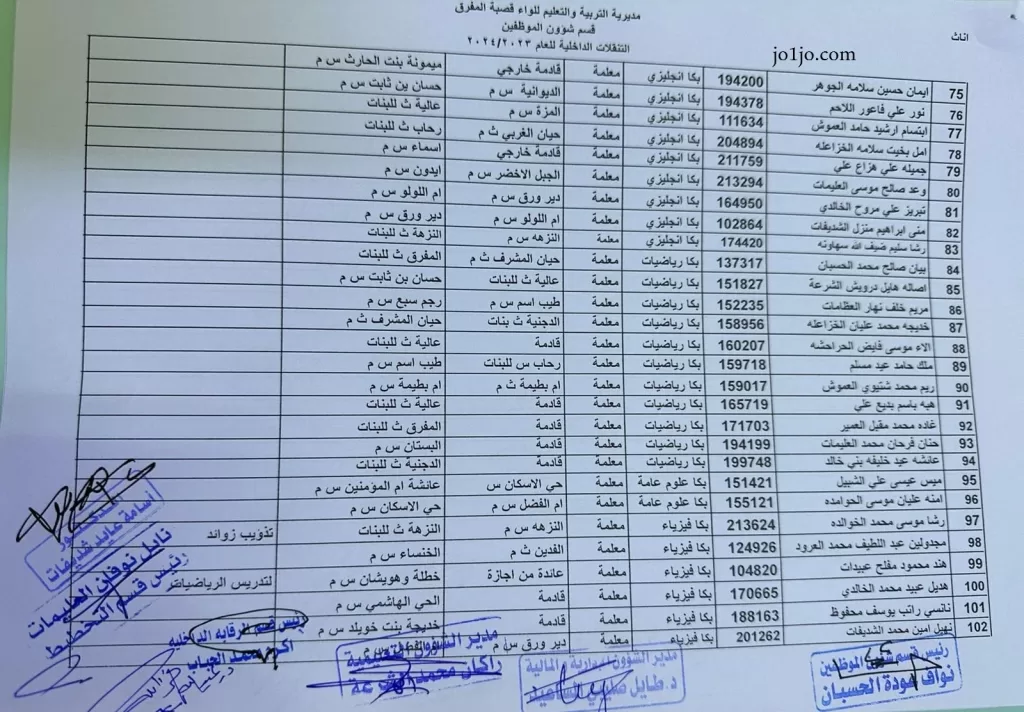 مديرية التربية والتعليم للواء قصبة المفرق
قسم شؤون الموظفين
التنقلات الداخلية للعام ٢٠٢٤/٢٠٢٣
اناث
jo1jo.com
75 ايمان حسين سلامه الجوهر 194200 بكا انجليزي معلمة قادمة خارجي ميمونة بنت الحارث س م
76 نور علي فاعور اللاحم 194378 بكا انجليزي معلمة الديوانية س م حسان بن ثابت س م
77 ابتسام ارشيد حامد العموش 111634 بكا انجليزي معلمة المزة س م عالية ث للبنات
78 امل بخيت سلامه الخزاعله 204894 بكا انجليزي معلمة حيان الغربي ث م رحاب ث للبنات
79 جميله علي هزاع علي 211759 بكا انجليزي معلمة قادمة خارجي اسماء س م
80 وعد صالح موسى العليمات 213294 بكا انجليزي معلمة الجبل الاخضر س م ايدون س م
81 تبريز علي مروح الخالدي 164950 بكا انجليزي معلمة دير ورق س م ام اللولو س م
82 منى ابراهيم منزل الشديفات 102864 بكا انجليزي معلمة ام اللولو س م دير ورق س م
83 رشا سليم ضيف الله سهاونه 174420 بكا انجليزي معلمة النزهه س م النزهة ث للبنات
84 بيان صالح محمد الحسبان 137317 بكا رياضيات معلمة حيان المشرف ث م المفرق ث للبنات
85 اصاله هايل درويش الشرعة 151827 بكا رياضيات معلمة عالية ث للبنات حسان بن ثابت س م
86 مريم خلف نهار العظامات 152235 بكا رياضيات معلمة طيب اسم س م رجم سبع س م
87 خديجه محمد عليان الخزاعله 158956 بكا رياضيات معلمة الدجنية ث بنات حيان المشرف ث م
88 الاء موسى فايض الحراحشه 160207 بكا رياضيات معلمة قادمة عالية ث للبنات
89 ملك حامد عيد مسلم 159718 بكا رياضيات معلمة رحاب س للبنات طيب اسم س م
90 ريم محمد شتيوي العموش 159017 بكا رياضيات معلمة ام بطيمة ث م ام بطيمة س م
91 هبه باسم بديع علي 165719 بكا رياضيات معلمة قادمة عالية ث للبنات
92 غاده محمد مقبل العمير 171703 بكا رياضيات معلمة قادمة المفرق ث للبنات
93 حنان فرحان محمد العليمات 194199 بكا رياضيات معلمة قادمة البستان س م
94 عائشه عيد خليفه بني خالد 199748 بكا رياضيات معلمة قادمة الدجنية ث للبنات
95 ميس عيسى علي الشبيل 151421 بكا علوم عامة معلمة حي الاسكان س عائشة ام المؤمنين س م
96 امنه عليان موسى الحوامده 155121 بكا علوم عامة معلمة ام الفضل س م حي الاسكان س م
97 رشا موسى محمد الخوالده 213624 بكا فيزياء معلمة النزهه س م النزهة ث للبنات تذويب زوائد
98 مجدولين عبد اللطيف محمد العرود 124926 بكا فيزياء معلمة الفدين ث م الخنساء س م
99 هند محمود مفلح عبيدات 104820 بكا فيزياء معلمة عائدة من اجازة خطلة وهويشان س م لتدريس الرياضيات
100 هديل عبيد محمد الخالدي 170665 بكا فيزياء معلمة قادمة الحي الهاشمي س م
101 نانسي راتب يوسف محفوظ 188163 بكا فيزياء معلمة قادمة خديجة بنت خويلد س م
102 نهيل امين محمد الشديفات 201262 بكا فيزياء معلمة دير ورق س م
الدكتور
أسامة عايد شديفات
نايل نوفان العليمات
رئيس قسم التخطيط
رئيس قسم الرقابه الداخليه
اكرم محمد الحباب
مدير الشؤون التعليمية
راكان محمد الشرعة
مدير الشؤون الادارية والمالية
رئيس قسم شؤون الموظفين
نواف عودة الحسبان